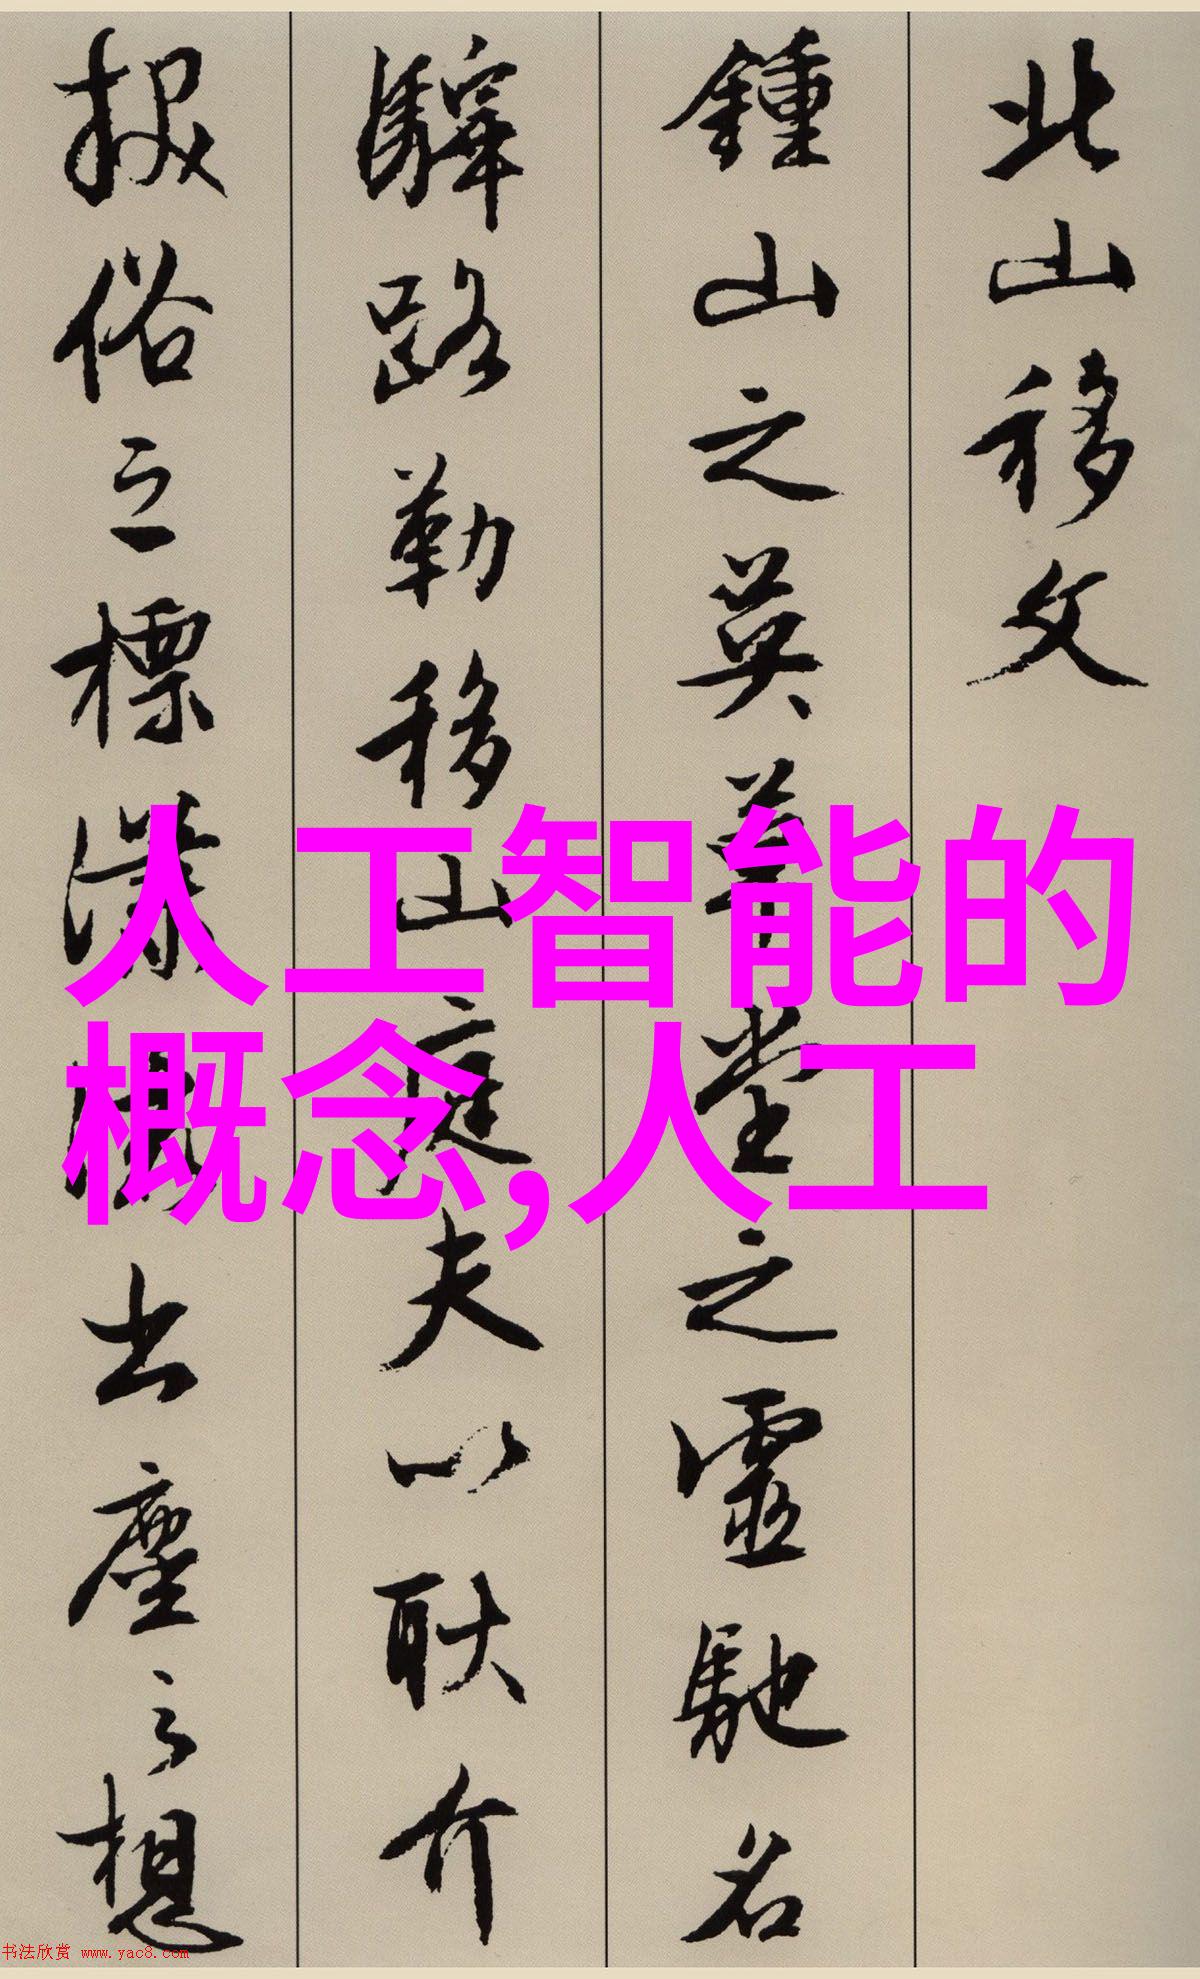 北山移文
鍾山之英草堂之靈馳名
驛路勒移山庭夫以耿介
拔俗之標瀟灑出塵之想
人工智能的
概念,人工
书法欣赏 www.yac8.com